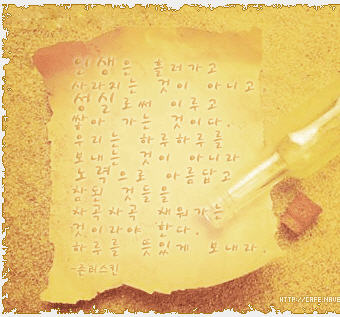 인생은 흘러가고
사라지는 것이 아니고
성실로써 이루고
쌓아 가는 것이다.
우리는 하루하루를
보내는 것이 아니라
노력으로 아름답고
참된 것들을
차곡차곡 채워가는
것이라야 한다.
하루를 뜻있게 보내라.
-존러스킨
HTTP://CAFE.NAVE